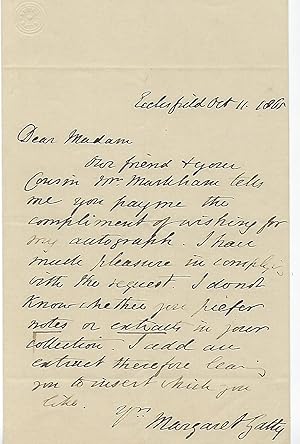 Ecclesfield Oct 11. 186
Dear Madam
Our friend & your
Cousin Mr. Markham tells
me you pay me the
compliment of wishing for
my autograph. I have
much pleasure in complying
with the request. I do not
know whether you prefer
notes or extracts in your
collection. I add an
extract therefore leaving
you to insert which you
like.
Yrs
Margaret Gatty